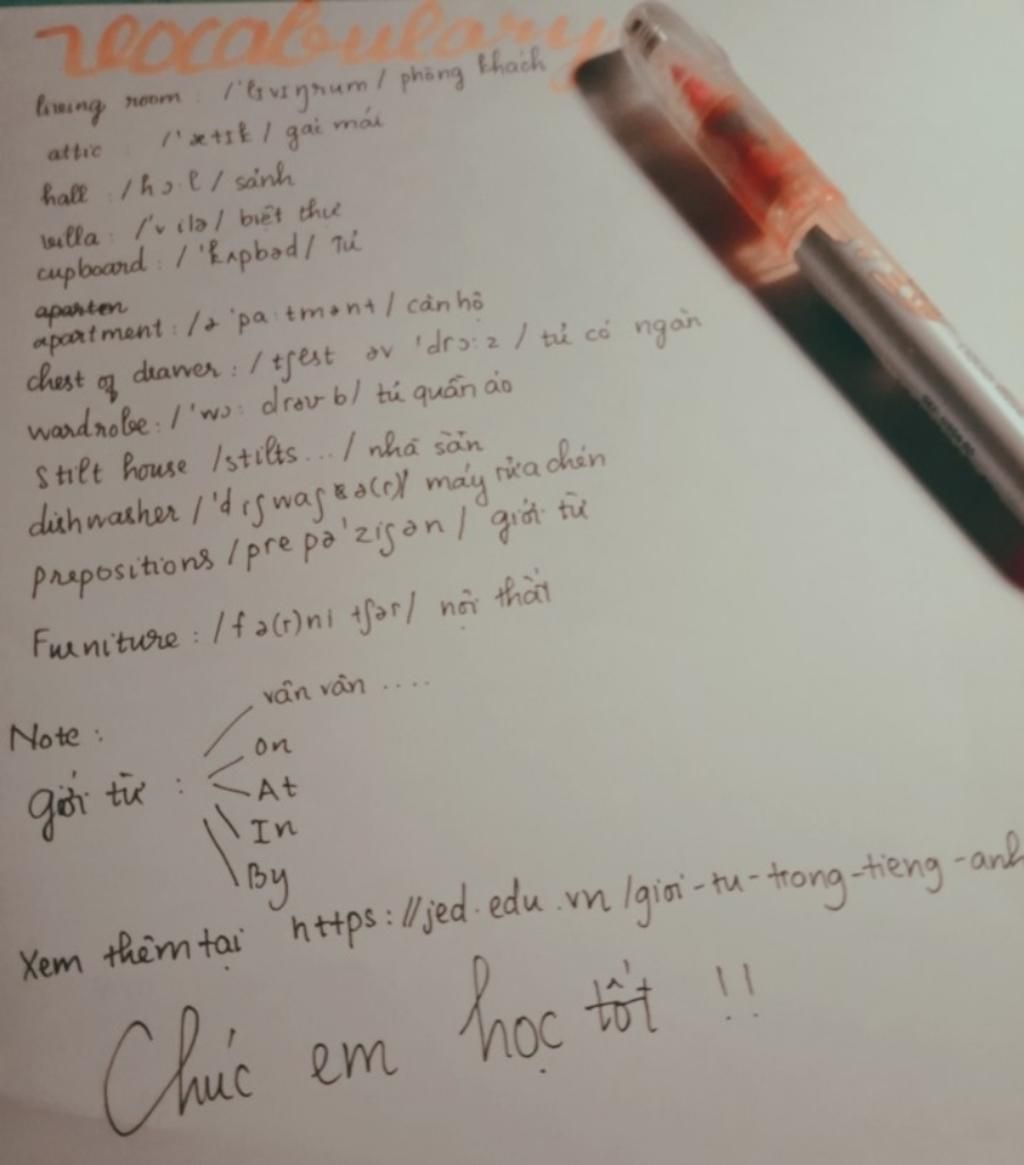 Vocabulary
living room : /'lɪvɪŋrum/ phòng khách
attic : /'ætɪk/ gai mái
hall : /hɔ:l/ sảnh
villa : /'vilə/ biệt thự
cupboard : /'kʌpbəd/ Tủ
aparten
apartment : /ə'pa:tmənt/ căn hộ
chest of drawer : /tʃest əv 'drɔ:z/ tủ có ngăn
wardrobe : /'wɔ:drəʊb/ tủ quần áo
Stilt house /stilts.../ nhà sàn
dishwasher /'dɪʃwaʃə(r)/ máy rửa chén
Prepositions /prepə'ziʃən/ giới từ
Furniture : /fə(r)ni tʃər/ nội thất
vân vân ....
Note :
on
giới từ :
At
In
By
Xem thêm tại https://jed.edu.vn/gioi-tu-trong-tieng-anh
Chúc em học tốt !!